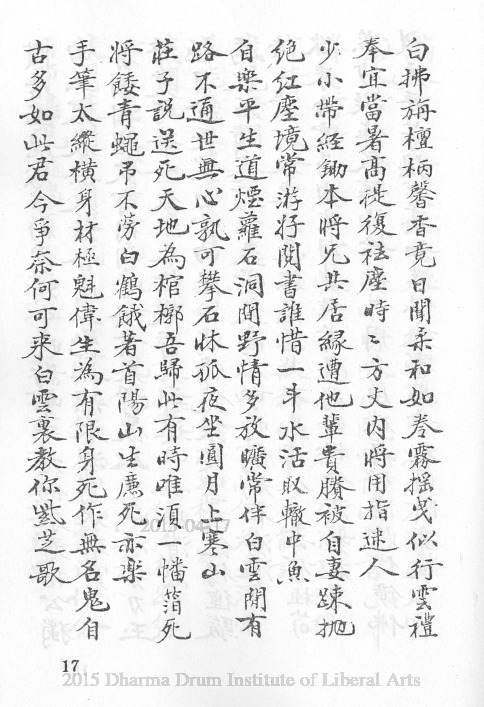 白拂旃檀柄馨香竟日聞柔和如卷霧搖曳似行雲禮
奉宜當暑高提復袪塵時〻方丈內將用指迷人
少小帶經鋤本將兄共居緣遭他輩責賸被自妻踈拋
絕紅塵境常游好閱書誰惜一斗水活取轍中魚
自樂平生道煙蘿石洞間野情多放曠常伴白雲閑有
路不通世無心孰可攀石牀孤夜坐圓月上寒山
莊子說送死天地為棺槨吾歸此有時唯須一幡箔死
將餧青蠅弔不勞白鶴餓著首陽山生廉死亦樂
手筆太縱橫身材極魁偉生為有限身死作無名鬼自
古多如此君今爭奈何可来白雲裏教你紫芝歌
17
2015 Dharma Drum Institute of Liberal Arts